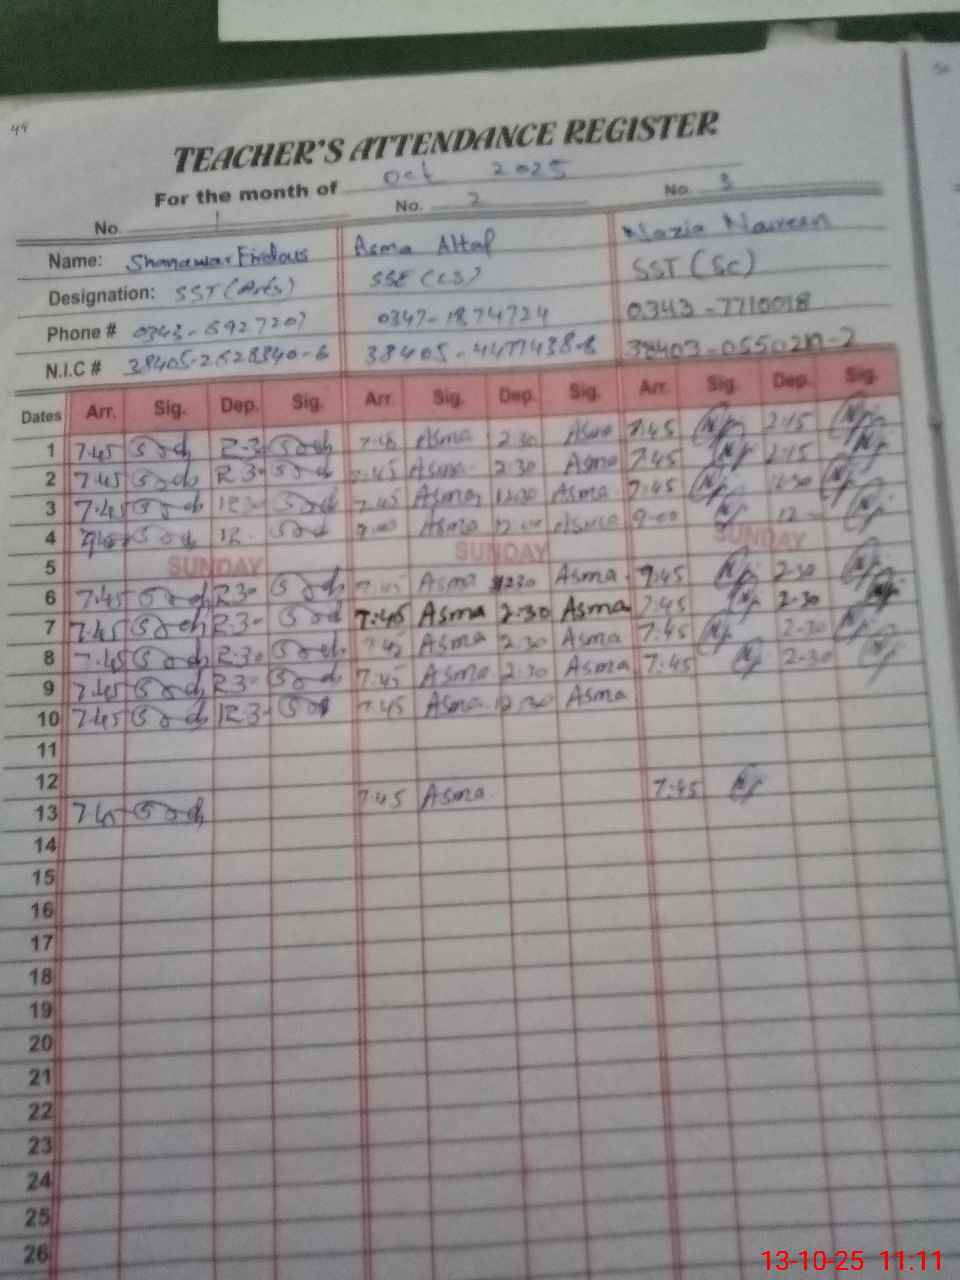 49
TEACHER'S ATTENDANCE REGISTER
For the month of Oct 2025
No. 1 No. 2 No. 3
Name: Shanawar Firdous Asma Altaf Nazia Naureen
Designation: SST (Arts) SSE (CS) SST (Sc)
Phone # 0343-6927207 0347-1874724 0343-7710018
N.I.C # 38405-2628340-6 38405-4477438-8 38403-
Dates Arr. Sig. Dep. Sig. Arr. Sig. Dep. Sig. Arr. Sig. Dep. Sig.
1 7.45 2.3 7.45 Asma 2:30 Asma 7:45 2:15
2 7.45 2.3 7.45 Asma 2:30 Asma 7:45 2:15
3 7.45 12.3 7.45 Asma 12:30 Asma 7:45 12:30
4 12. 9:00 Asma 12:00 Asma 9:00 12
5 SUNDAY SUNDAY SUNDAY
6 7.45 2.30 7:45 Asma 2:30 Asma 7:45 2:30
7 7.45 2.3 7:45 Asma 2:30 Asma 7:45 2:30
8 7.45 2.30 7:45 Asma 2:30 Asma 7:45 2:30
9 7.45 2.3 7:45 Asma 2:30 Asma 7:45 2:30
10 7.45 12.3 7:45 Asma 12:30 Asma
11
12
13 7.45 7:45 Asma 7:45
14
15
16
17
18
19
20
21
22
23
24
25
26
13-10-25 11:11